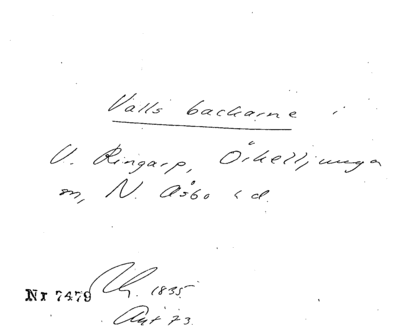 Valls backarne i
V. Ringarp, Örkelljunga
sn, N. Åsbo hd.
Nr 7479
1835
Ant 73